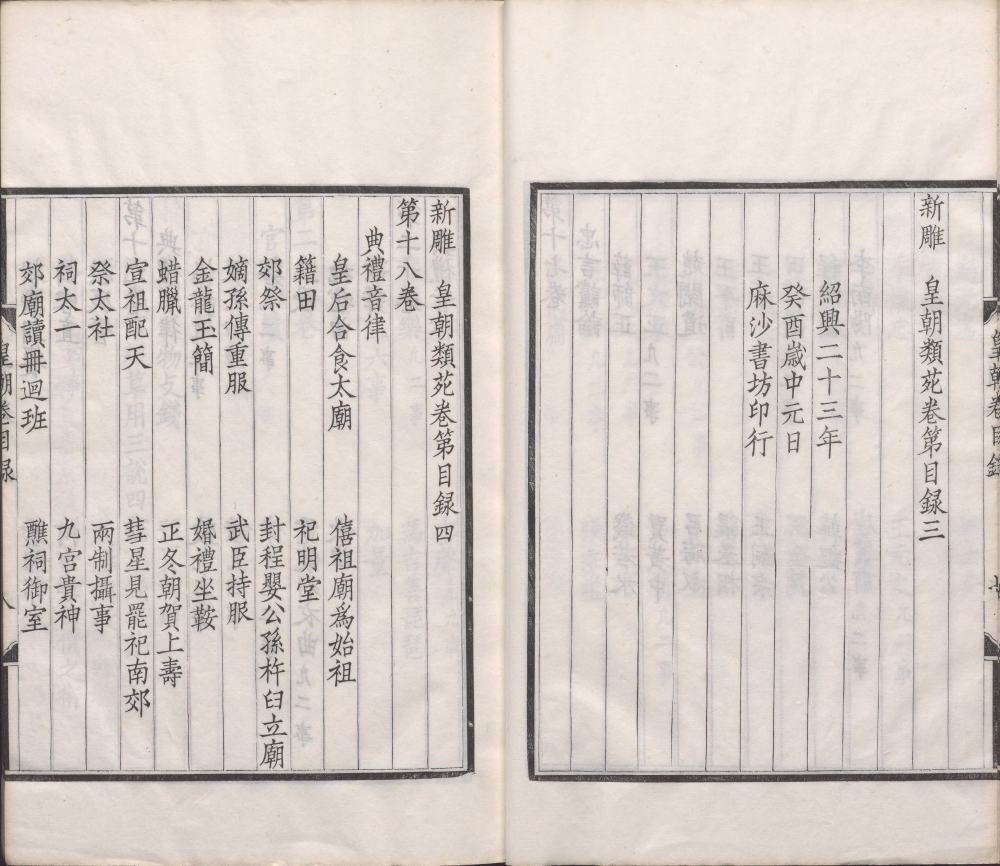 新雕 皇朝類苑卷第目録三
紹興二十三年
癸酉歳中元日
麻沙書坊印行
新雕 皇朝類苑卷第目録四
第十八卷
典禮音律
皇后合食太廟 僖祖廟爲始祖
籍田 祀明堂
郊祭 封程嬰公孫杵臼立廟
嫡孫傳重服 武臣持服
金龍玉簡 婚禮坐鞍
蜡臘 正冬朝賀上壽
宣祖配天 彗星見罷祀南郊
祭太社 兩制攝事
祠太一 九宫貴神
郊廟讀冊迴班 醮祠御室